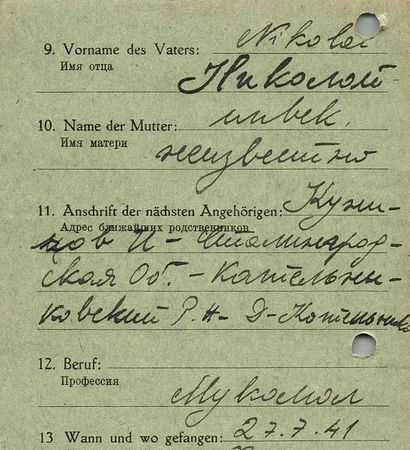 9. Vorname des Vaters: Nikolai
Имя отца
Николай
10. Name der Mutter: unbek.
Имя матери
неизвестно
11. Anschrift der nächsten Angehörigen: Кузне-
Адрес ближайших родственников
цов И - Сталинград-
ская Об. - Котельни-
ковский Р.Н - Д-Котельниково
12. Beruf:
Профессия
Мукомол
13 Wann und wo gefangen: 27.7.41